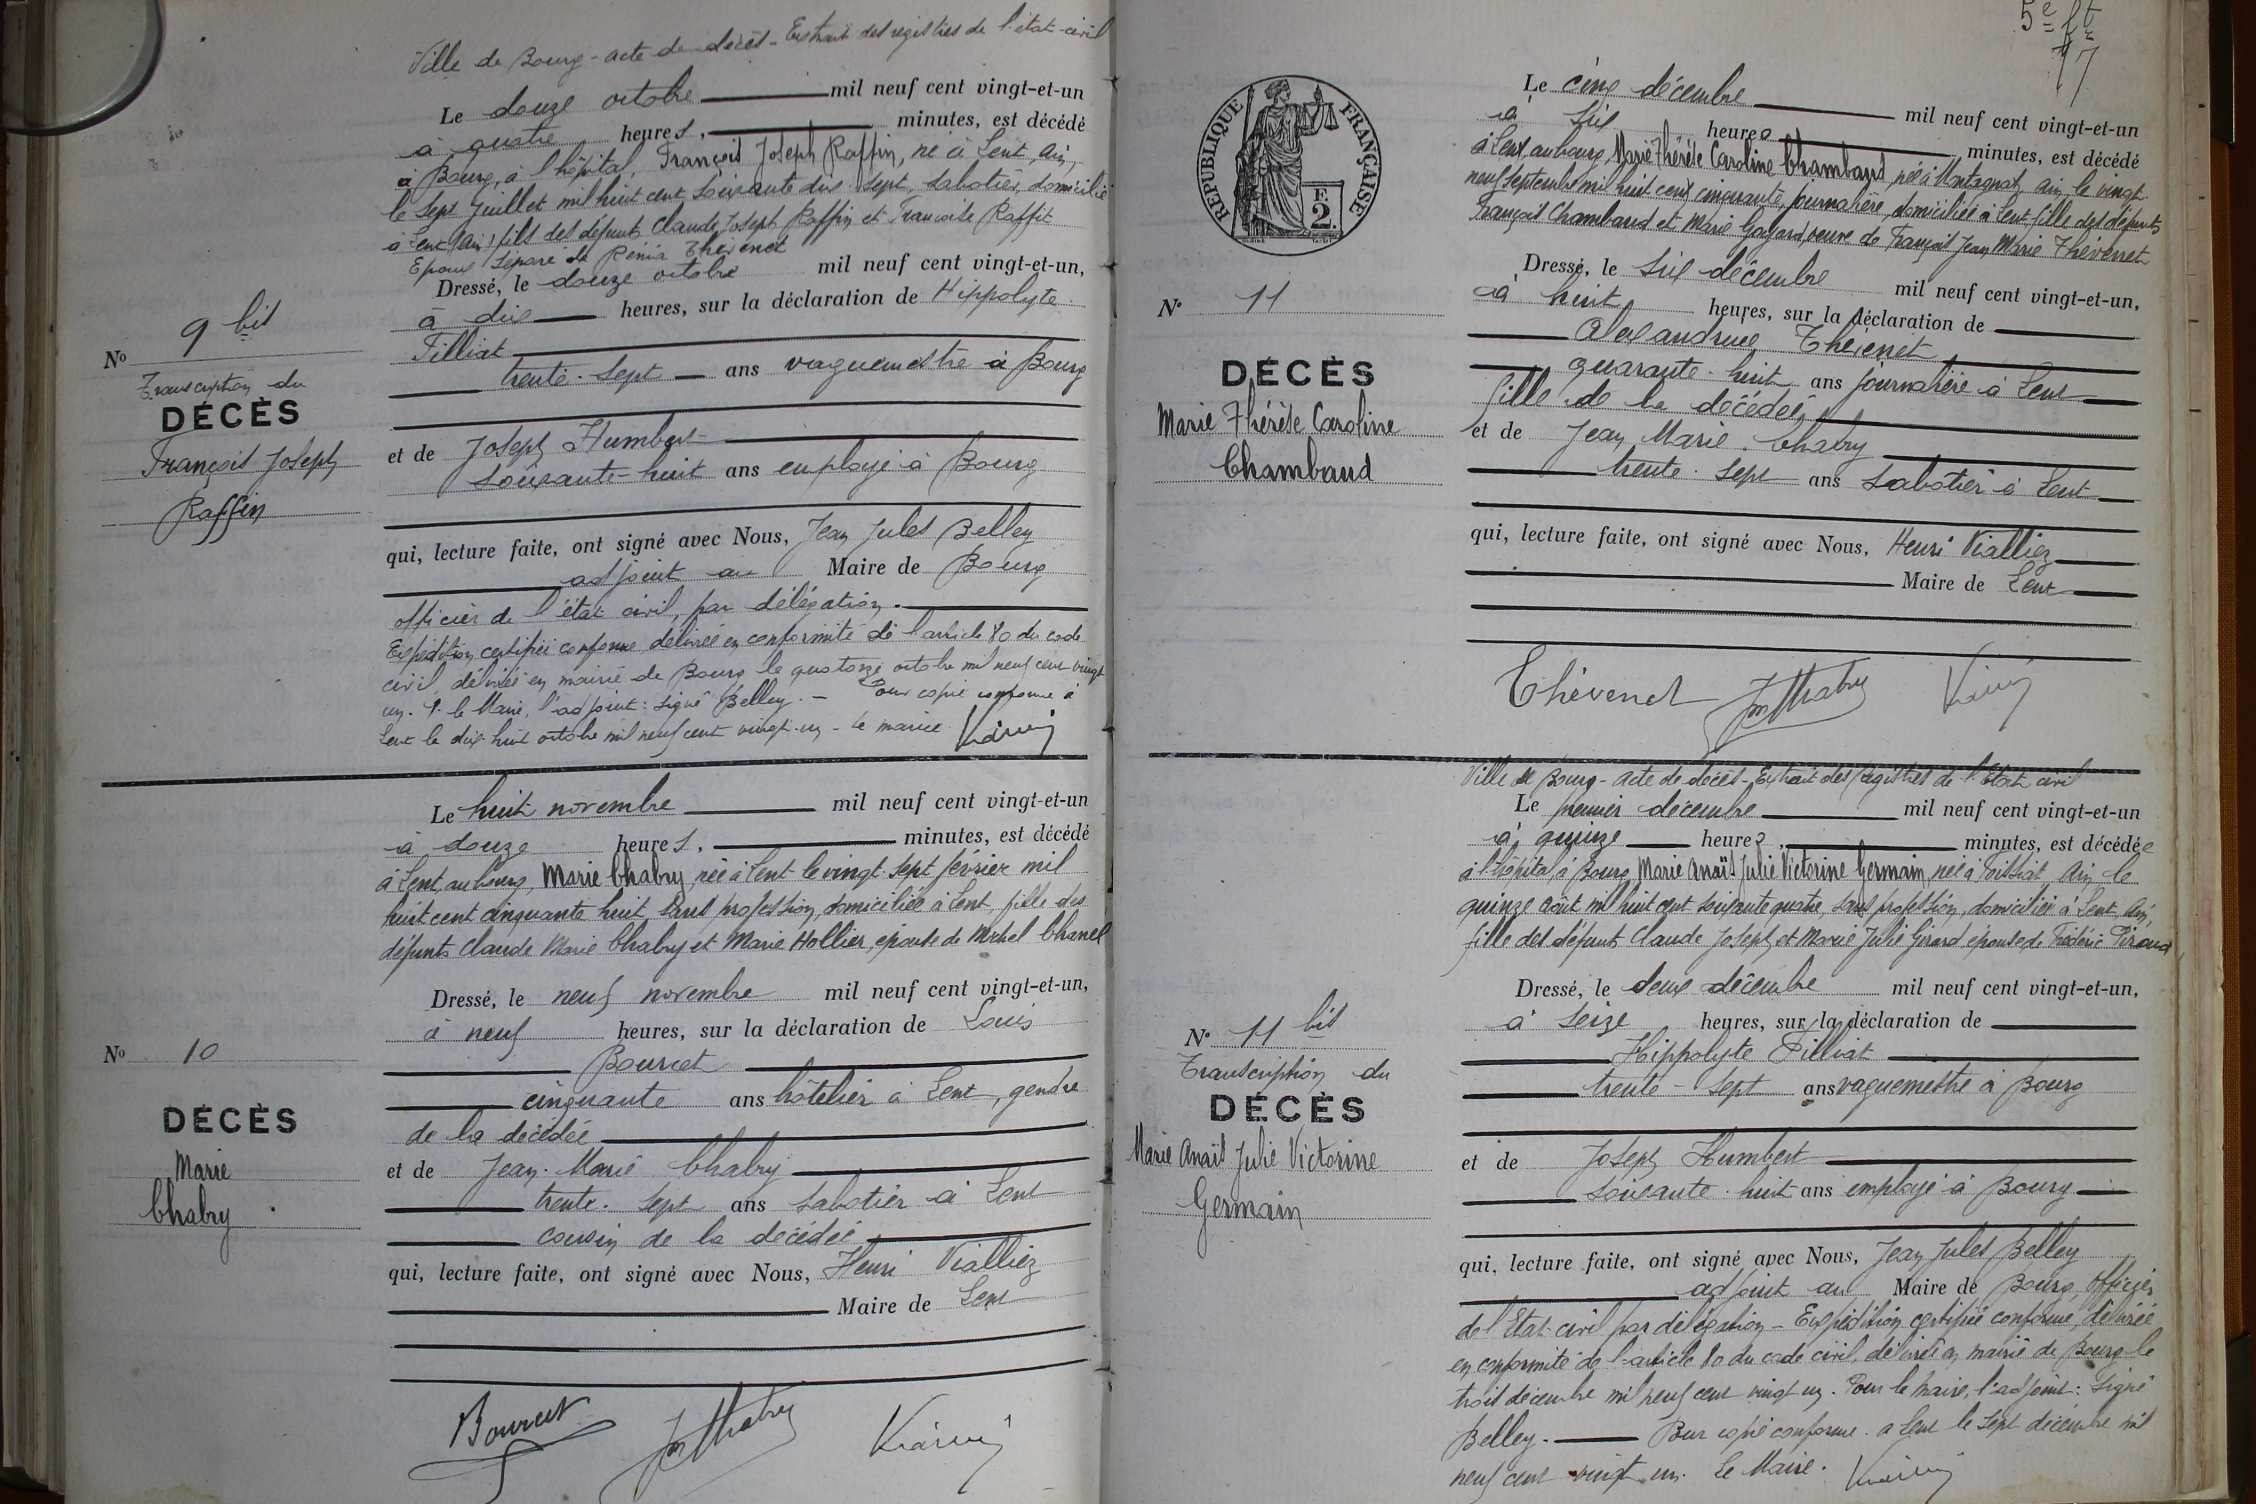 Ville de Bourg - acte de décès - Extrait des registres de l'état-civil
Le douze octobre mil neuf cent vingt-et-un
à quatre heures, minutes, est décédé
à Bourg, à l'hôpital, François Joseph Raffin, né à Lent, Ain,
le sept juillet mil huit cent soixante dix-sept, sabotier, domicilié
à Lent (Ain) fils des défunts Claude Joseph Raffin et Françoise Raffit
Epoux séparé de Rénia Thévenet
Dressé, le douze octobre mil neuf cent vingt-et-un,
à dix heures, sur la déclaration de Hippolyte
Filliat
trente-sept ans vaguemestre à Bourg
et de Joseph Humbert
soixante-huit ans employé à Bourg
qui, lecture faite, ont signé avec Nous, Jean Jules Belley
adjoint au Maire de Bourg
officier de l'état civil, par délégation.
Expédition certifiée conforme délivrée en conformité de l'article 80 du code
civil, délivrée en mairie de Bourg le quatorze octobre mil neuf cent vingt
un. P. le Maire, l'adjoint : signé Belley. - Pour copie conforme à
Lent le dix-huit octobre mil neuf cent vingt-un - le maire
No 9 bis
Transcription du
DÉCÈS
François Joseph
Raffin
Le huit novembre mil neuf cent vingt-et-un
à douze heures, minutes, est décédé
à Lent, au bourg, Marie Chabry, née à Lent le vingt-sept février mil
huit cent cinquante huit, sans profession, domiciliée à Lent, fille des
défunts Claude Marie Chabry et Marie Hollier, épouse de Michel Chanel
Dressé, le neuf novembre mil neuf cent vingt-et-un,
à neuf heures, sur la déclaration de Louis
Bourcet
cinquante ans hôtelier à Lent, gendre
de la décédée
et de Jean-Marie Chabry
trente-sept ans sabotier à Lent
cousin de la décédée
qui, lecture faite, ont signé avec Nous, Henri Vialliez
Maire de Lent
Bourcet JM Chabry
No 10
DÉCÈS
Marie
Chabry
5e ft
77
RÉPUBLIQUE FRANÇAISE
E
2.
Le cinq décembre mil neuf cent vingt-et-un
à six heures minutes, est décédé
à Lent, au bourg, Marie Thérèse Caroline Chambaud, née à Montagnat, Ain, le vingt
neuf septembre mil huit cent cinquante, journalière, domiciliée à Lent fille des défunts
François Chambaud et Marie Goyard, veuve de François Jean Marie Thévenet
Dressé, le six décembre mil neuf cent vingt-et-un,
à huit heures, sur la déclaration de
Alexandrine Thévenet
quarante-huit ans journalière à Lent
fille de la décédée
et de Jean Marie Chabry
trente-sept ans sabotier à Lent
qui, lecture faite, ont signé avec Nous, Henri Vialliez
Maire de Lent
Thévenet JM Chabry
No 11
DÉCÈS
Marie Thérèse Caroline
Chambaud
Ville de Bourg - acte de décès - Extrait des registres de l'Etat civil
Le premier décembre mil neuf cent vingt-et-un
à quinze heures, minutes, est décédée
à l'hôpital à Bourg Marie Anaïs Julie Victorine Germain, née à Foissiat, Ain, le
quinze août mil huit cent soixante quatre, sans profession, domiciliée à Lent, Ain,
fille des défunts Claude Joseph et Marie Julie Girard épouse de Frédéric Piroud
Dressé, le deux décembre mil neuf cent vingt-et-un,
à seize heures, sur la déclaration de
Hippolyte Filliat
trente-sept ans vaguemestre à Bourg
et de Joseph Humbert
soixante-huit ans employé à Bourg
qui, lecture faite, ont signé avec Nous, Jean Jules Belley
adjoint au Maire de Bourg, officier
de l'Etat-civil par délégation - Expédition certifiée conforme, délivrée
en conformité de l'article 80 du code civil, délivrée en mairie de Bourg le
trois décembre mil neuf cent vingt un. Pour le Maire, l'adjoint : signé
Belley. - Pour copie conforme. a Lent le sept décembre mil
neuf cent vingt un. Le Maire.
No 11 bis
Transcription du
DÉCÈS
Marie Anaïs Julie Victorine
Germain